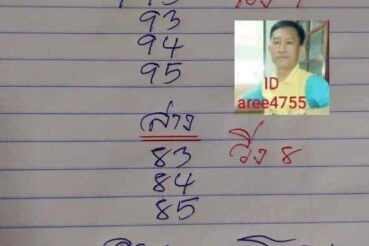 93
94
95
ID
aree4755
ล่าง
83 วิ่ง 8
84
85